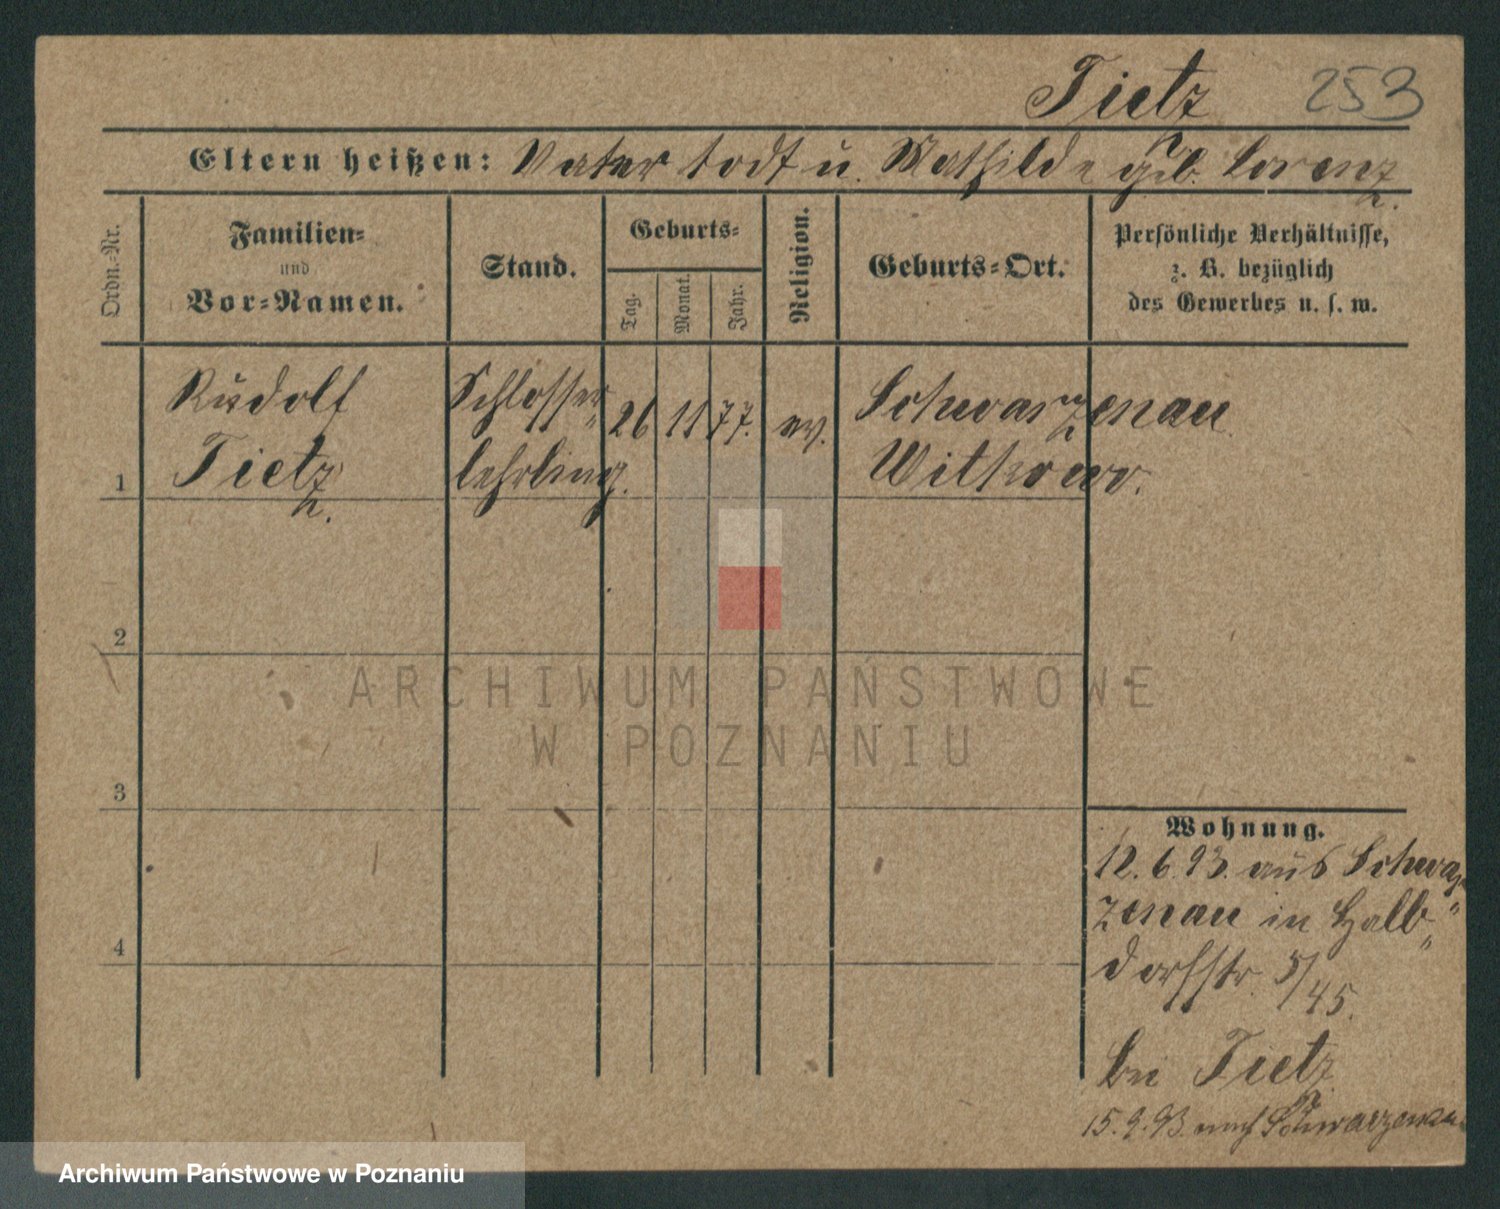 Tietz 253
Eltern heißen: Vater todt u. Mathilde geb. Lorenz.
Ordn.-Nr.
Familien-
und
Vor-Namen.
Stand.
Geburts-
Tag.
Monat.
Jahr.
Religion.
Geburts-Ort.
Persönliche Verhältnisse,
z. B. bezüglich
des Gewerbes u. s. w.
1
Rudolf
Tietz.
Schlosser„
lehrling.
26
11
77.
ev.
Schwarzenau
Witkowo.
2
3
4
Wohnung.
12.6.93. aus Schwar„
zenau in Halb„
dorfstr. 5/45.
bei Tietz
15.9.93. nach Schwarzenau
ARCHIWUM PAŃSTWOWE
W POZNANIU
Archiwum Państwowe w Poznaniu